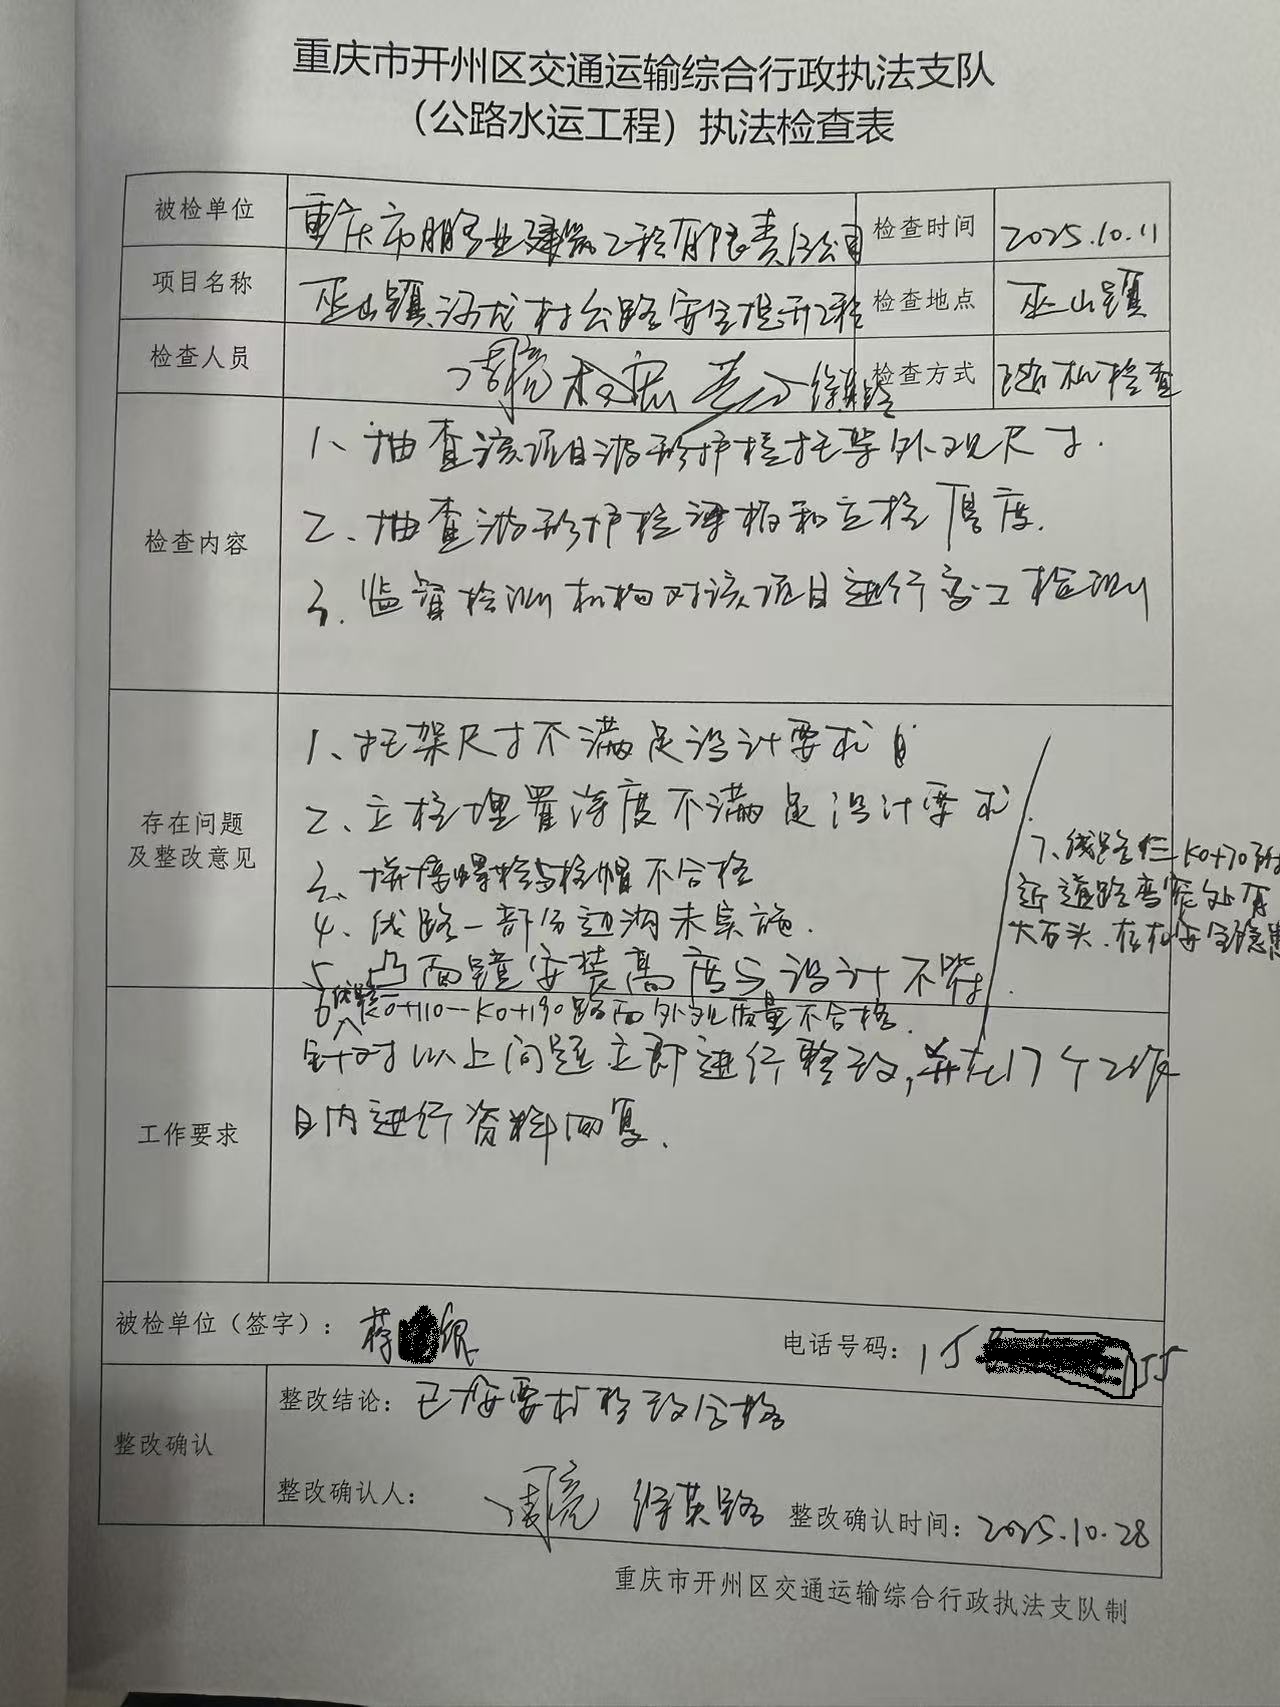 重庆市开州区交通运输综合行政执法支队
（公路水运工程）执法检查表
被检单位 重庆市鹏业建筑工程有限责任公司 检查时间 2025.10.11
项目名称 巫山镇 龙村公路安全提升工程 检查地点 巫山镇
检查人员 周亮 徐英路 检查方式 随机检查
检查内容
1、抽查该项目波形护栏托架外观尺寸.
2、抽查波形护栏梁板和立柱厚度.
3、监督检测机构对该项目进行交工检测
存在问题
及整改意见
1、托架尺寸不满足设计要求
2、立柱埋置深度不满足设计要求
3、拼接螺栓与栓帽不合格
4、线路一部分边沟未实施.
5、凸面镜安装高度与设计不符.
6、线路 K0+110—K0+190路面外观质量不合格.
7、线路三K0+70附
近道路弯 处有
大石头、存在安全隐患
工作要求
针对以上问题立即进行整改,并在17个工作
日内进行资料回复.
被检单位（签字）： 蒋 银 电话号码： 15 155
整改确认
整改结论: 已按要求整改合格
整改确认人： 周亮 徐英路 整改确认时间: 2025.10.28
重庆市开州区交通运输综合行政执法支队制